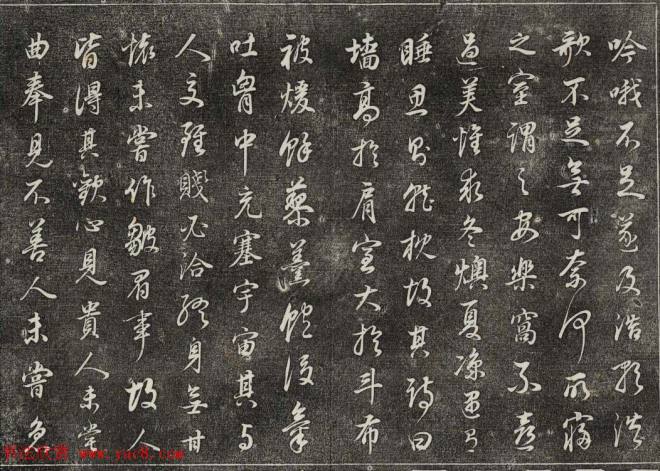 吟哦不足遂及浩歌浩
歌不足無可奈何所寢
之室謂之安樂窩不喜
過美惟求冬燠夏涼遇有
睡思則就枕故其詩曰
墻高於肩室大於斗布
被煖餘藜羹飽後氣
吐胷中充塞宇宙其與
人交雖賤必洽終身無甘
壞未嘗作皺眉事故人
皆得其歡心見貴人未嘗
曲奉見不善人未嘗急
书法欣赏 www.yac8.com